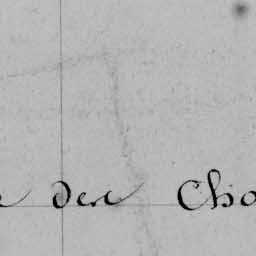 der Cho